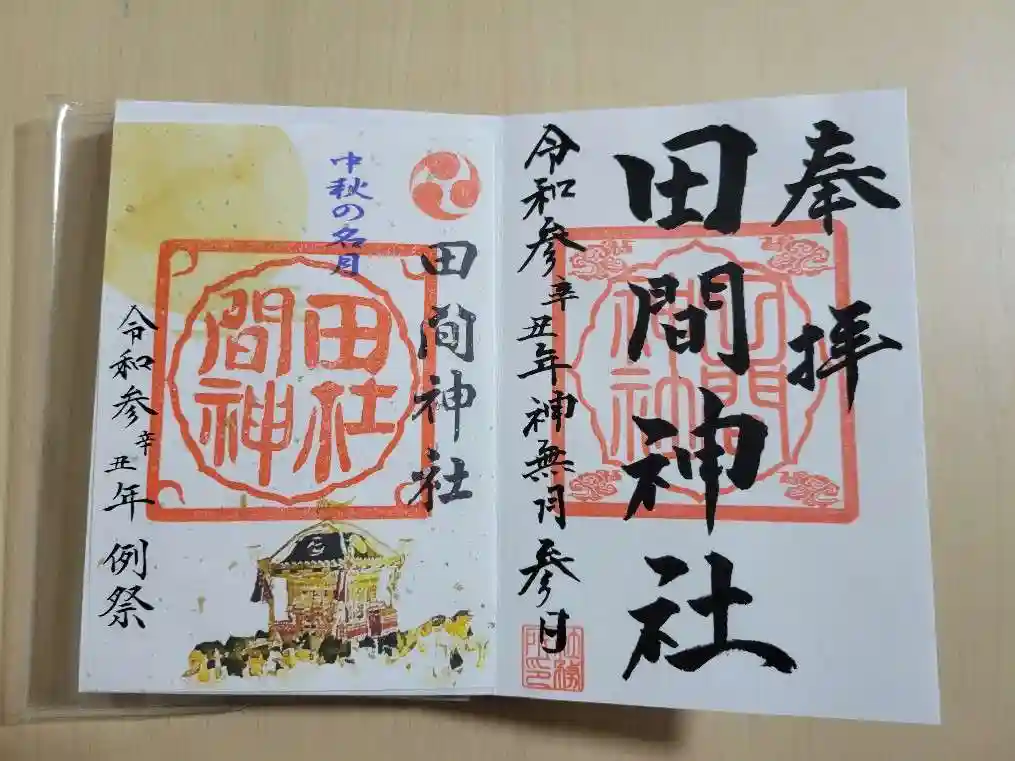 奉拝
田間神社
令和参辛丑年神無月参日
中秋の名月
田间神社
田社
間神
令和参辛丑年 例祭